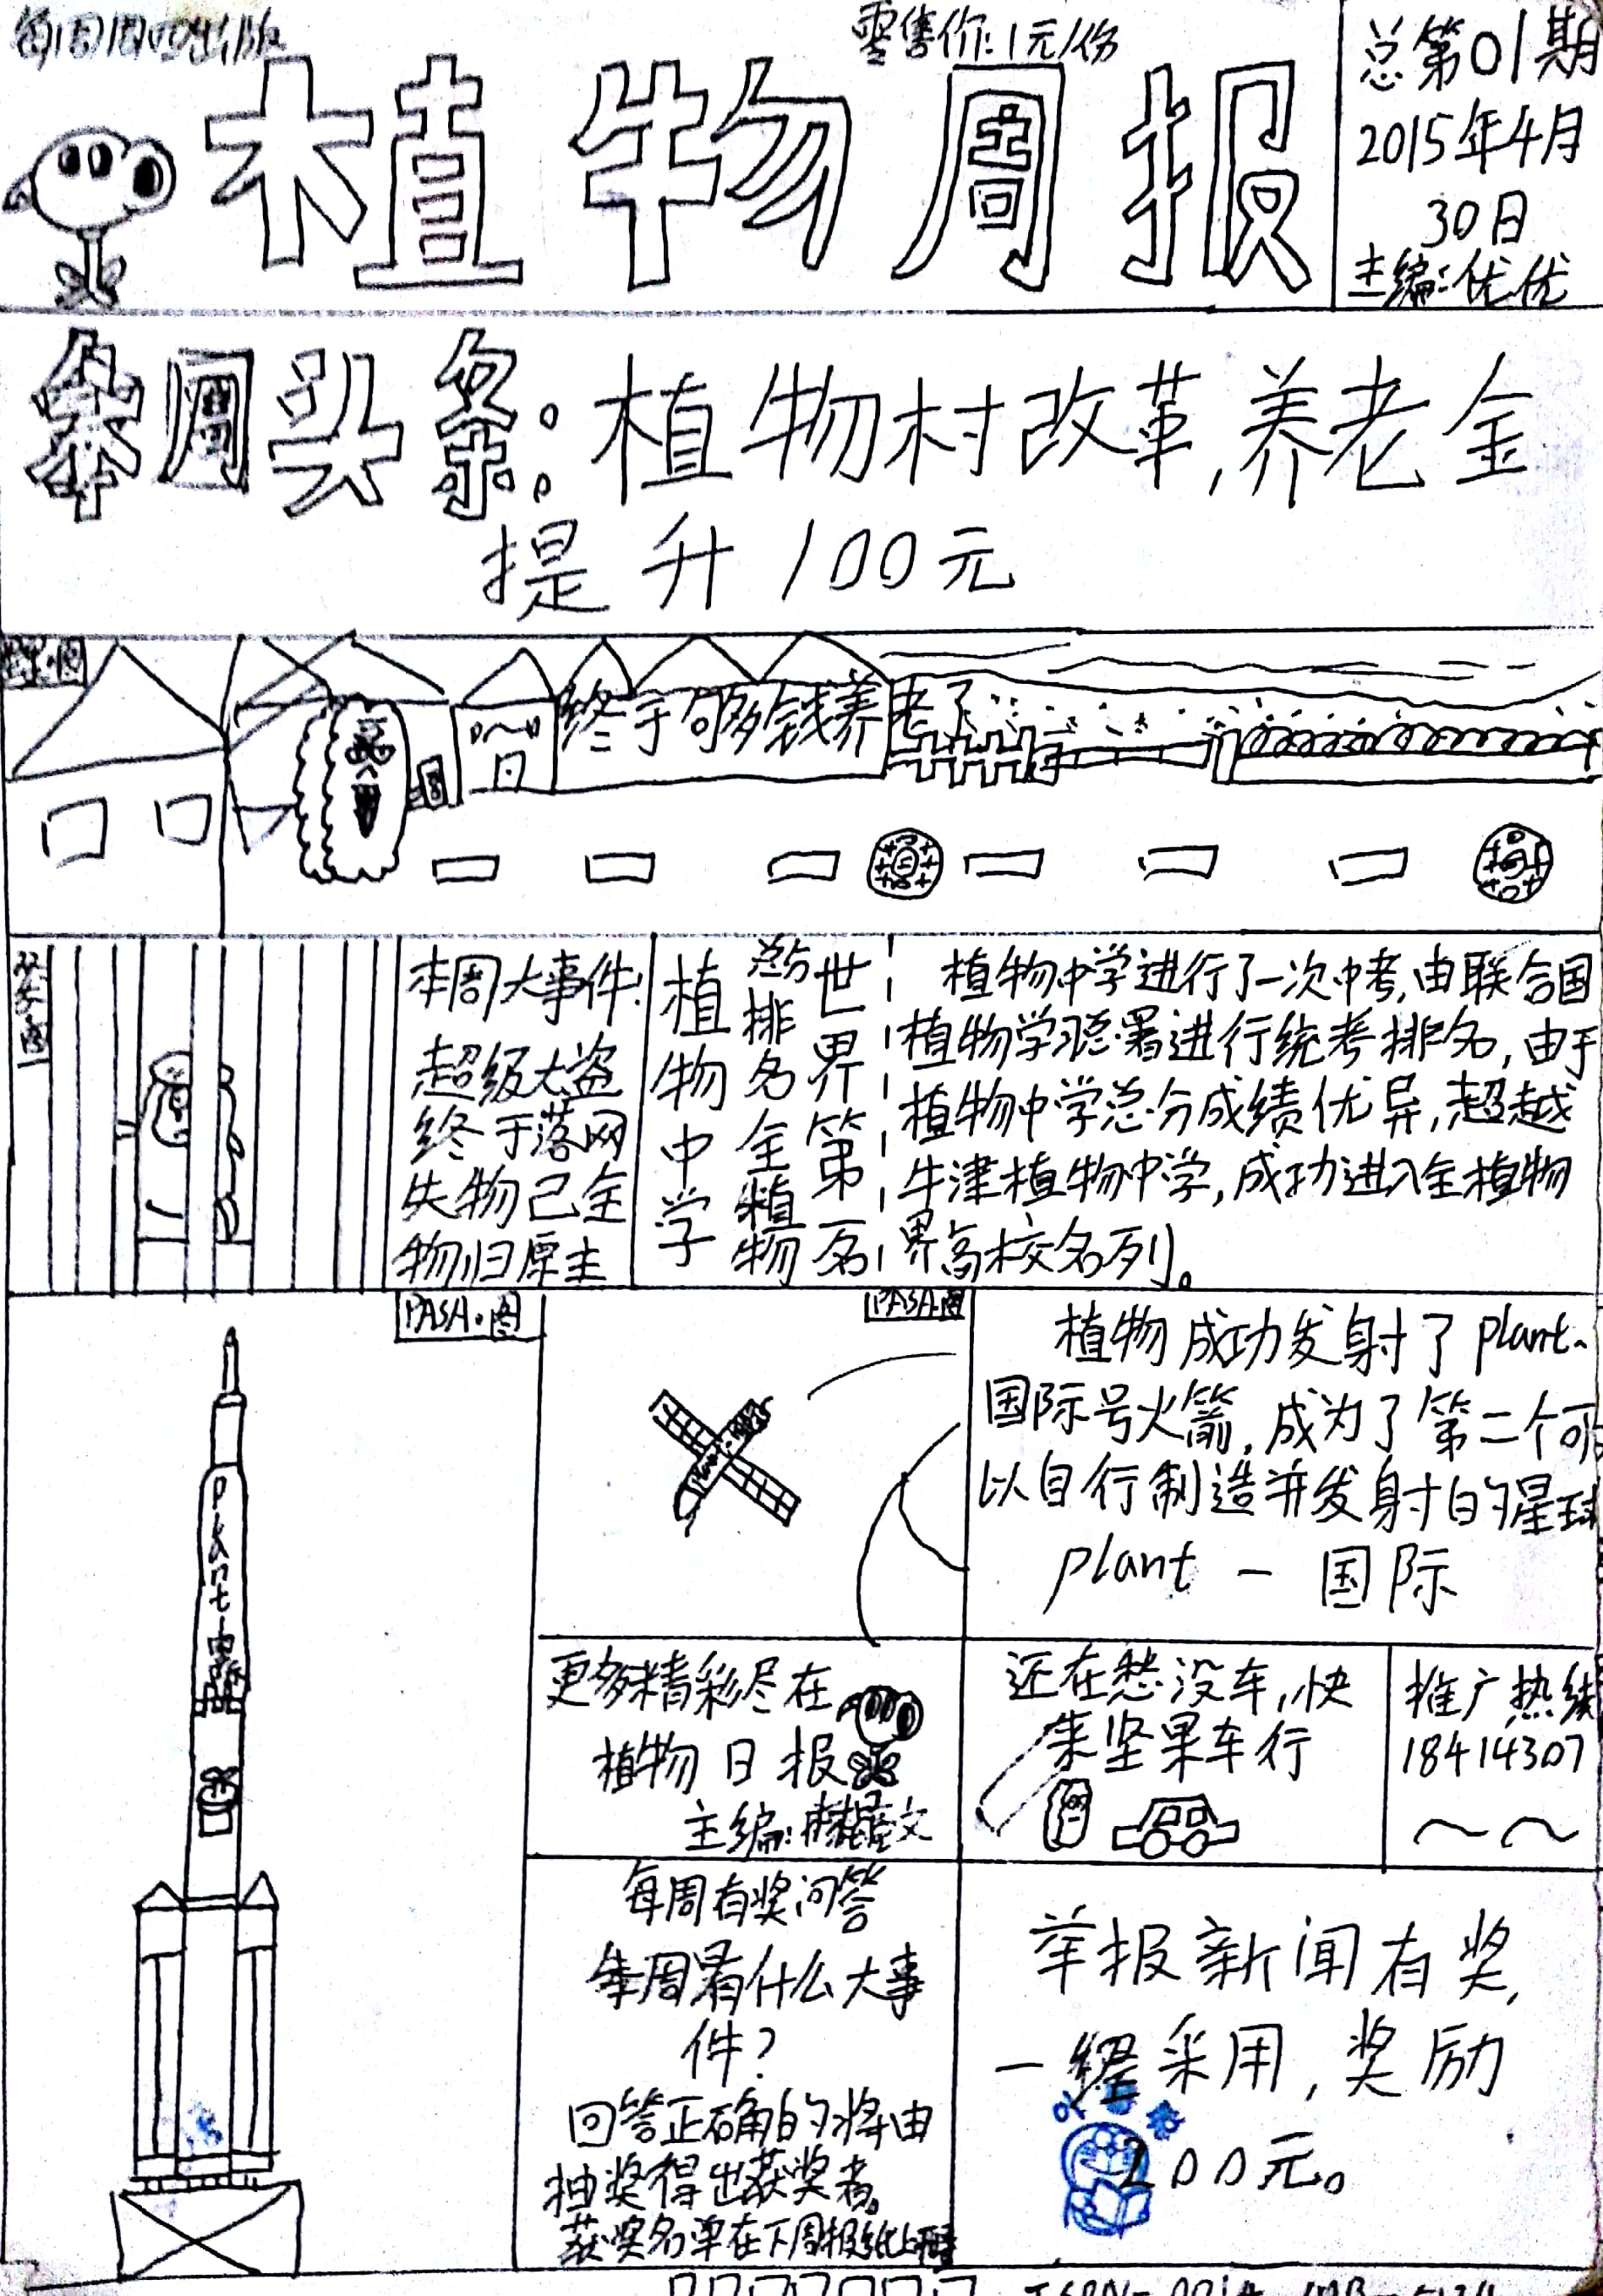 每周周四出版
零售价:1元/份
植物周报
总第01期
2015年4月
30日
主编:优优
本周头条:植物村改革,养老金
提升100元
终于够多钱养老了
本周大事件:
超级大盗
终于落网
失物已全
物归原主
植物中学
总分排名全植物
世界第一名
植物中学进行了一次中考,由联合国
植物学总署进行统考排名,由于
植物中学总分成绩优异,超越
牛津植物中学,成功进入全植物
界高校名列。
PASA·图
PASA·图
Plant-国际
植物成功发射了plant-
国际号火箭,成为了第二个可
以自行制造并发射的星球
plant-国际
更多精彩尽在
植物日报
主编:
还在愁没车,快
来坚果车行
推广热线
18414307
每周有奖问答
本周有什么大事
件?
回答正确的将由
抽奖得出获奖者。
获奖名单在下周报纸上
举报新闻有奖,
一经采用,奖励
200元。